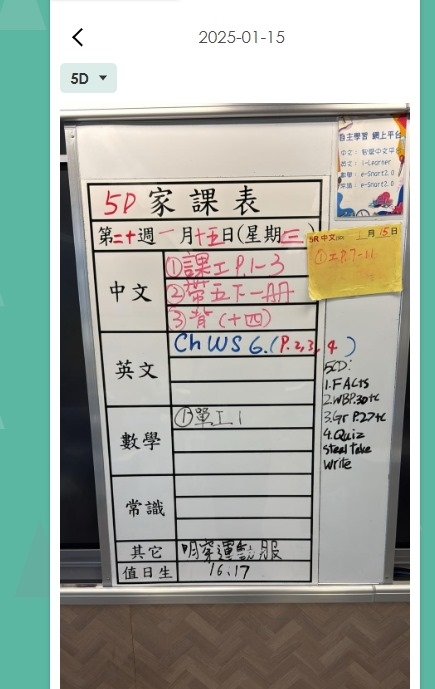 2025-01-15
5D
自主學習 網上平台
中文：智愛中文平台
英文：i-Learner
數學：e-Smart2.0
常識：e-Smart2.0
5D 家課表
第二十週一月十五日(星期三)
5R 中文 1月15日
①工P.7-11
中文
①課工P.1-3
②帶五下一冊
③背(十四)
英文
Ch WS 6.(P.2,3,4)
5CD:
1.FACTS
2.WBP.30+c
3.Gr P.27+c
4.Quiz
Steal Take
Write
數學
①單工1
常識
其它
明穿運動服
值日生
16、17